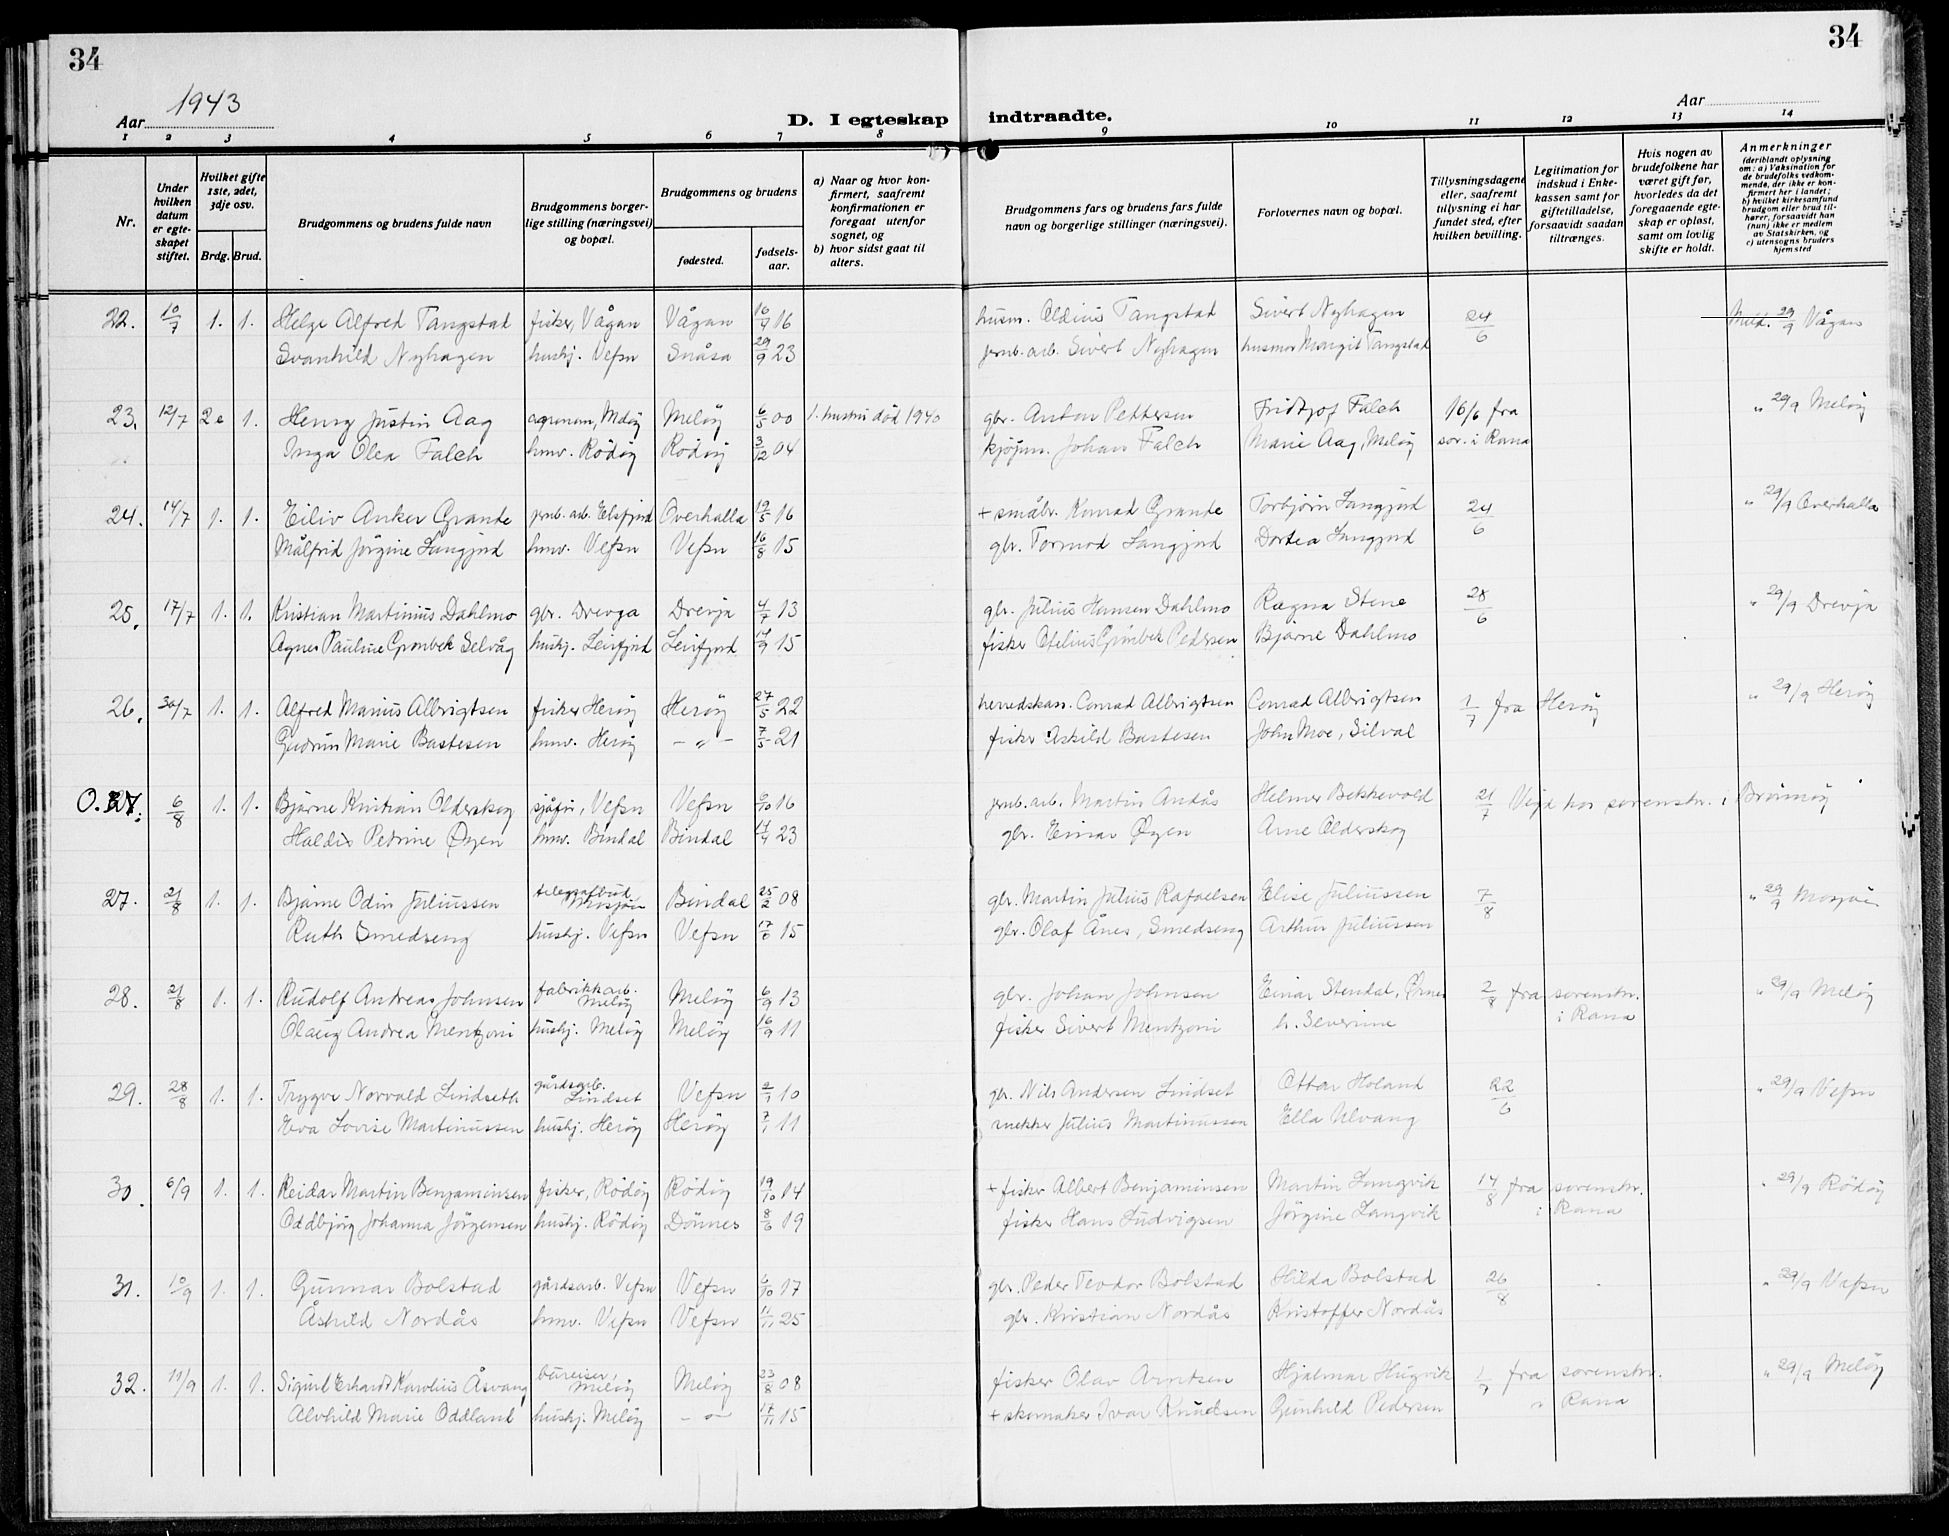 34
34
1943
Aar
Aar
D. I egteskap indtraadte.
1 2 3 4 5 6 7 8 9 10 11 12 13 14
Nr.
Under hvilken datum er egteskapet stiftet.
Hvilket gifte 1ste, 2det, 3dje osv.
Brdg. Brud.
Brudgommens og brudens fulde navn
Brudgommens borgerlige stilling (næringsvei) og bopæl.
Brudgommens og brudens
fødested.
fødselsaar.
a) Naar og hvor konfirmert, saafremt konfirmationen er foregaat utenfor sognet, og
b) hvor sidst gaat til alters.
Brudgommens fars og brudens fars fulde navn og borgerlige stillinger (næringsvei).
Forlovernes navn og bopæl.
Tillysningsdagene eller, saafremt tillysning ei har fundet sted, efter hvilken bevilling.
Legitimation for indskud i Enkekassen samt for giftetilladelse, forsaavidt saadan tiltrænges.
Hvis nogen av brudefolkene har været gift før, hvorledes da det foregaaende egteskap er opløst, samt om lovlig skifte er holdt.
Anmerkninger
(deriblandt oplysning om: a) Vaksination for de brudefolks vedkommende, der ikke er konfirmert her i landet; b) hvilket kirkesamfund brudgom eller brud tilhører, forsaavidt han (hun) ikke er medlem av Statskirken, og c) utensogns bruders hjemsted
22. 10/7 1. 1. Helge Alfred Tangstad fisker, Vågan Vågan 16/9 16 husm. Aldius Tangstad Sivert Nyhagen 24/6 Meld. 29/9 Vågan
Svanhild Nyhagen hushj. Vefsn Snåsa 29/9 23 jernb. arb. Sivert Nyhagen husmor Margit Tangstad
23. 12/7 2e 1. Henry Justin Aag agronom, Meløy Meløy 6/5 00 1. hustru død 1940 gbr. Anton Pettersen Fridtjof Falch 16/6 fra " 29/9 Meløy
Inga Olea Falch hmv. Rödöy Rödöy 3/12 04 kjøpm. Johan Falch Marie Aag, Meløy sor. i Rana
24. 14/7 1. 1. Eiliv Anker Grande jernb. arb. Elsfjord Overhalla 19/5 16 + småbr. Konrad Grande Torbjörn Langjord 24/6 " 29/9 Overhalla
Målfrid Jørgine Langjord hmv. Vefsn Vefsn 16/8 15 gbr. Tormod Langjord Dortea Langjord
25. 17/7 1. 1. Kristian Martinius Dahlmo gbr. Drevja Drevja 4/7 13 gbr. Julius Hansen Dahlmo Ragna Stene 28/6 " 29/9 Drevja
Agnes Pauline Grönbek Selvåg hushj. Leirfjord Leirfjord 14/9 15 fisker Otelius Grönbek Pedersen Bjarne Dahlmo
26. 30/7 1. 1. Alfred Marius Albrigtsen fisker Heröy Heröy 27/5 22 herredskass. Conrad Albrigtsen Conrad Albrigtsen 1/7 fra Heröy " 29/9 Heröy
Gudrun Marie Bastesen hmv. Heröy - " - 7/5 21 fisker Askild Bastesen John Moe, Silval
O. 27. 6/8 1. 1. Bjarne Kristian Olderskog sjåfør, Vefsn Vefsn 6/10 16 jernb. arb. Martin Andås Helmer Bekkevold 21/7 Viet hos sorenskr. i Brönnöy
Haldis Pedrine Øyen hmv. Bindal Bindal 17/4 23 gbr. Einar Øyen Arne Olderskog
27. 21/8 1. 1. Bjarne Odin Juliussen telegrafbud Mosjøen Bindal 25/2 08 gbr. Martin Julius Rafaelsen Elise Juliussen 7/8 " 29/9 Mosjøen
Ruth Smedseng hushj. Vefsn Vefsn 17/6 15 gbr. Olaf Ånes, Smedseng Arthur Juliussen
28. 21/8 1. 1. Rudolf Andreas Johnsen fabrikkarb. Meløy Meløy 6/9 13 gbr. Johan Johnsen Einar Stendal, Ørnes 2/8 fra sorenskr. i Rana " 29/9 Meløy
Olaug Andrea Mentzoni hushj. Meløy Meløy 16/9 11 fisker Sivert Mentzoni h. Severine
29. 28/8 1. 1. Trygve Norvald Lindseth gårdsarb. Lindset Vefsn 2/1 10 gbr. Nils Andersen Lindset Ottar Holand 22/6 " 29/9 Vefsn
Eva Lovise Martinussen hushj. Heröy Heröy 7/1 11 snekker Julius Martinussen Ella Ulvang
30. 6/9 1. 1. Reidar Martin Benjaminsen fisker, Rödöy Rödöy 19/10 14 + fisker Albert Benjaminsen Martin Langvik 14/8 fra sorenskr. " 29/9 Rödöy
Oddbjörg Johanna Jörgensen hushj. Rödöy Dönnes 8/6 19 fisker Hans Ludvigsen Jörgine Langvik i Rana
31. 10/9 1. 1. Gunnar Bolstad gårdsarb. Vefsn Vefsn 6/10 17 gbr. Peder Teodor Bolstad Hilda Bolstad 26/8 " 29/9 Vefsn
Åshild Nordås hmv. Vefsn Vefsn 11/11 25 gbr. Kristian Nordås Kristoffer Nordås
32. 11/9 1. 1. Sigurd Erhardt Karolius Åsvang bureiser, Meløy Meløy 23/8 08 fisker Olav Arntsen Hjalmar Hugvik 1/7 fra sorenskr. " 29/9 Meløy
Alvhild Marie Oddland hushj. Meløy - " - 17/11 15 + skomaker Ivar Knudsen Gunhild Pedersen " Rana